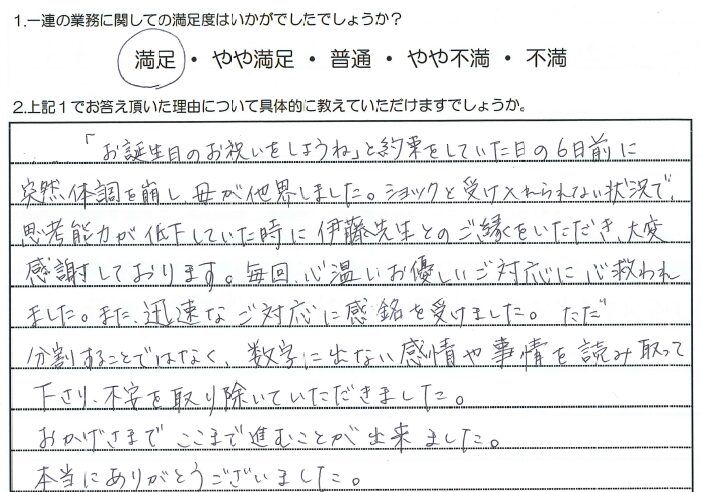 1.一連の業務に関しての満足度はいかがでしたでしょうか?
満足・やや満足・普通・やや不満・不満
2.上記1でお答え頂いた理由について具体的に教えていただけますでしょうか。
「お誕生日のお祝いをしようね」と約束をしていた日の6日前に
突然体調を崩し母が他界しました。ショックと受け入れられない状況で、
思考能力が低下していた時に伊藤先生とのご縁をいただき、大変
感謝しております。毎回、心温いお優しいご対応に心救われ
ました。また、迅速なご対応に感銘を受けました。ただ
分割することではなく、数字に出ない感情や事情を読み取って
下さり、不安を取り除いていただきました。
おかげさまでここまで進むことが出来ました。
本当にありがとうございました。